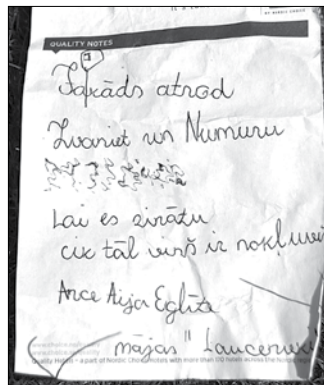 QUALITY NOTES
Ja kāds atrod
Zvaniet un Numuru
Lai es zinātu
cik tāl viņš ir nokļuvis
Arce Aija Eglīte
mājas "Lauceniexi
Quality Hotels – a part of Nordic Choice Hotels with more than 170 hotels across the Nordic region